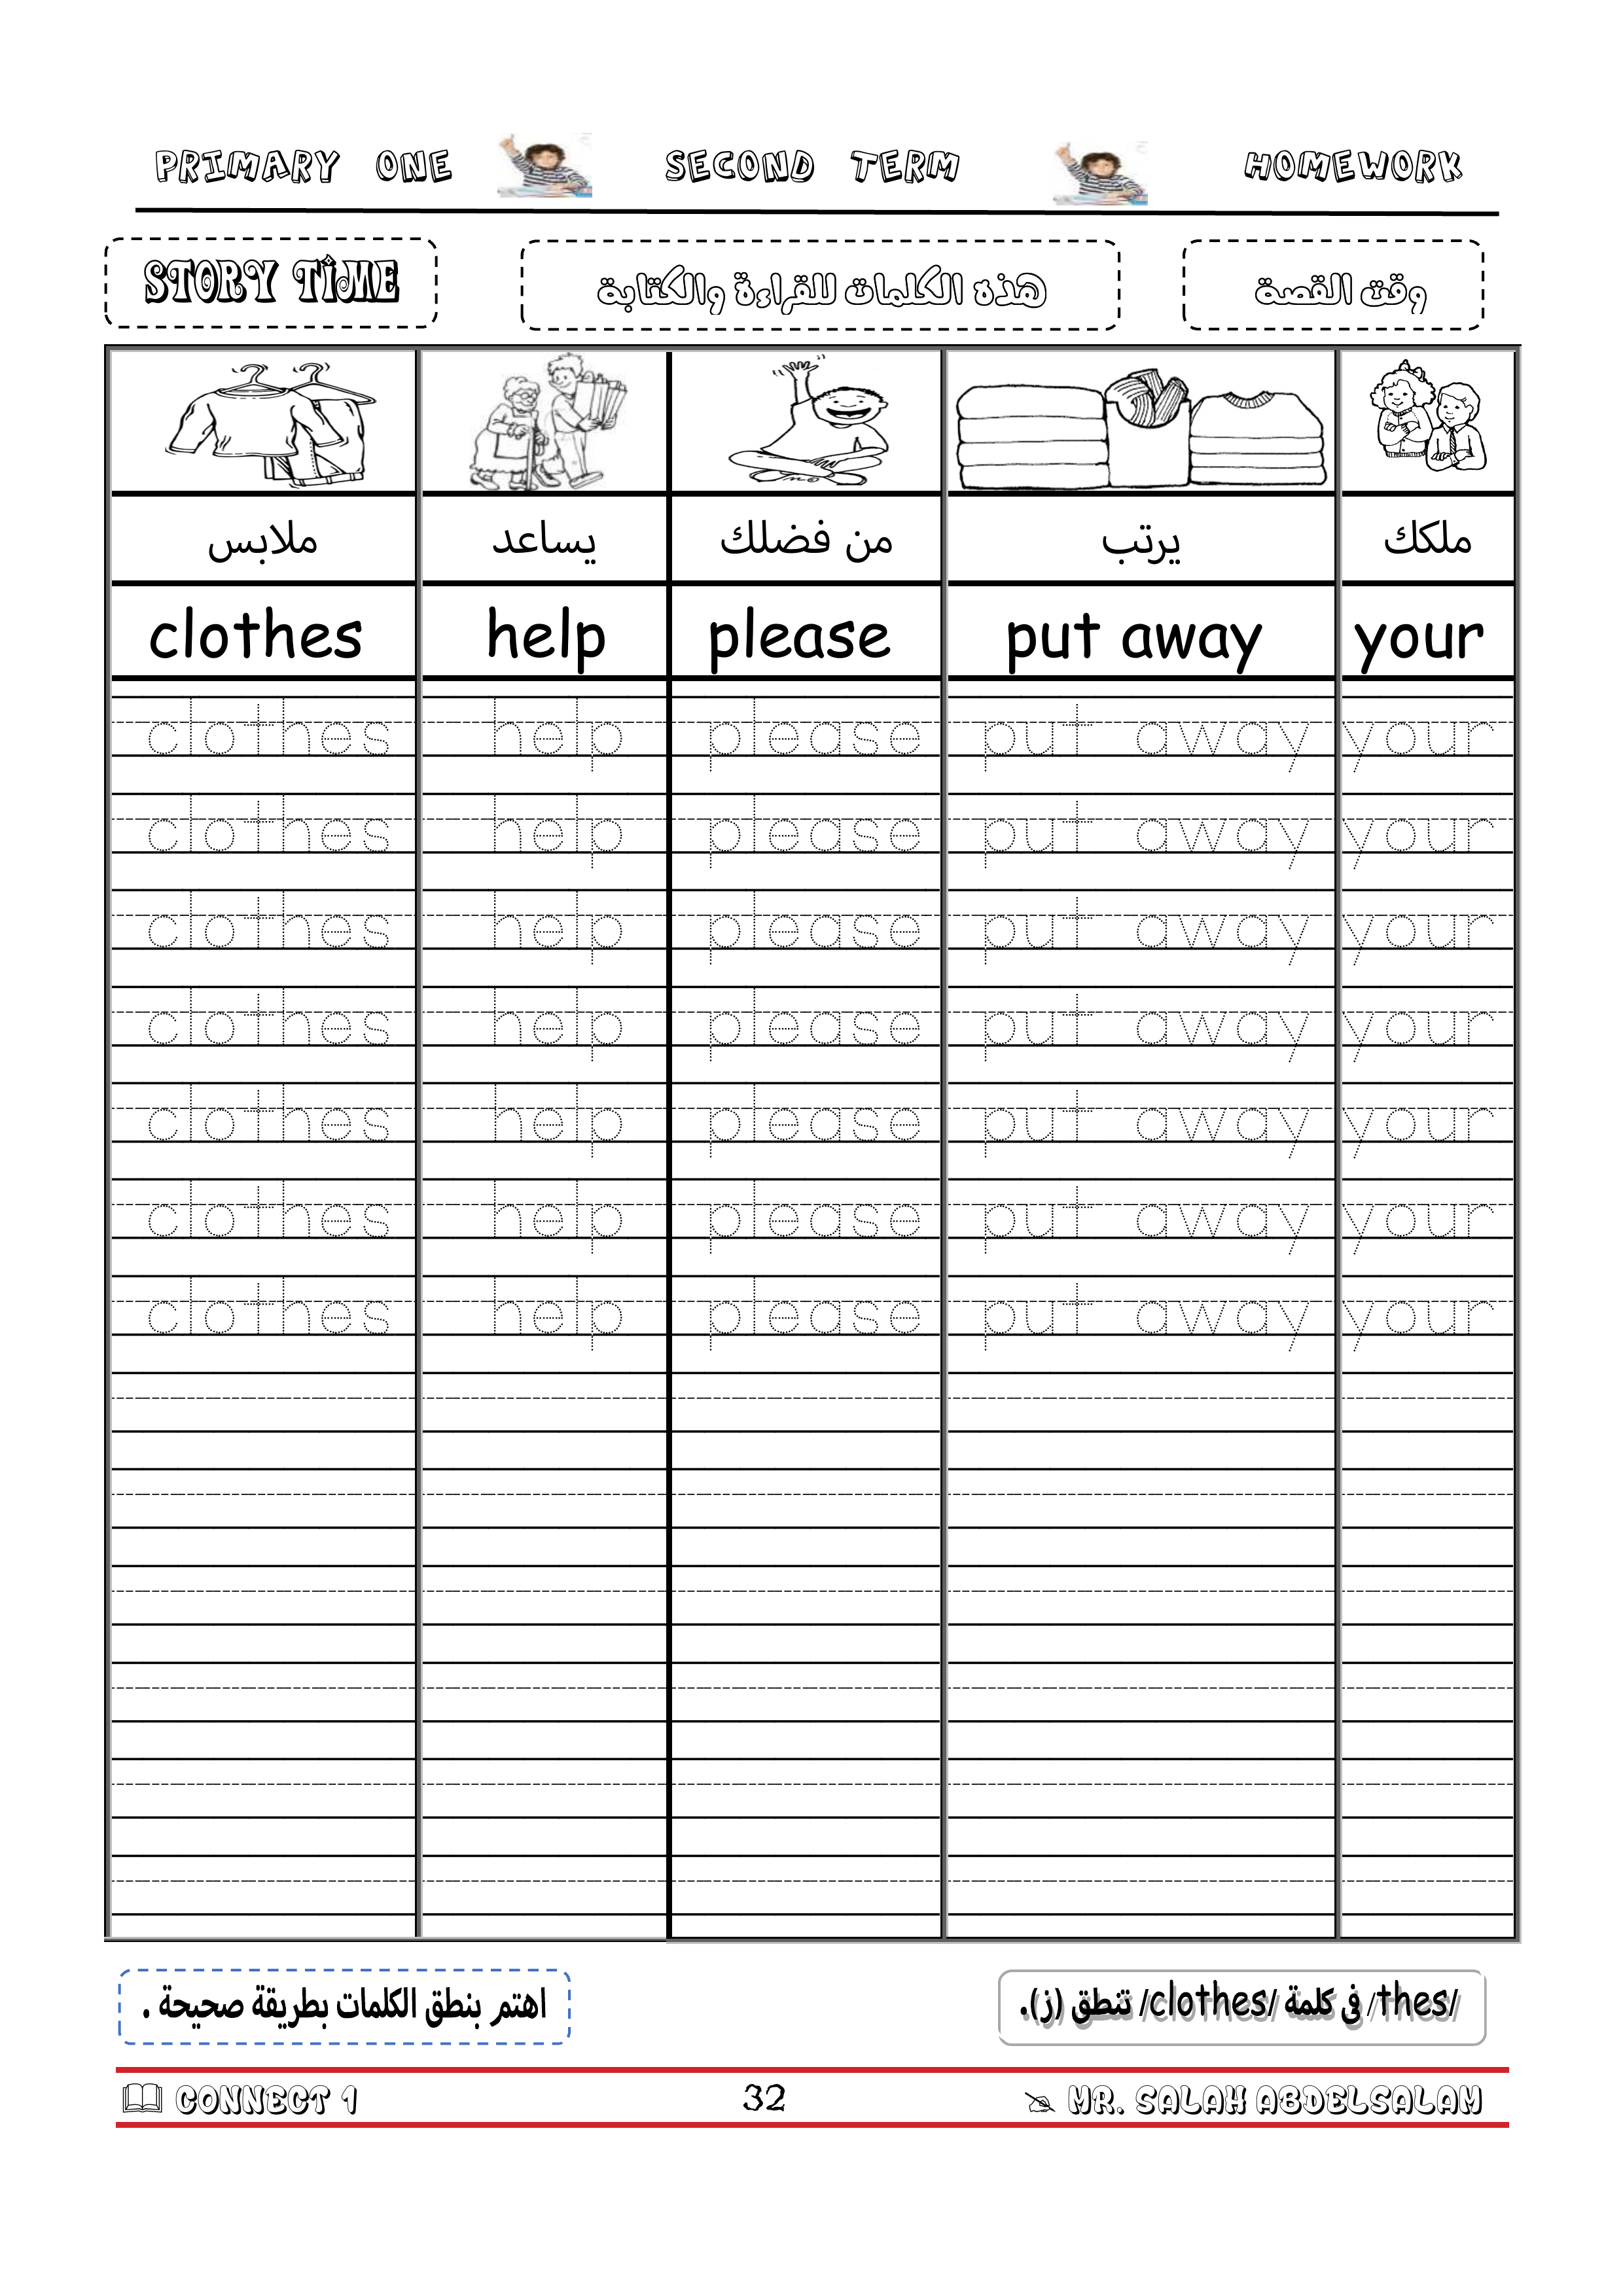 PRIMARY ONE SECOND TERM HOMEWORK
STORY TIME هذه الكلمات للقراءة والكتابة وقت القصة
ملابس يساعد من فضلك يرتب ملكك
clothes help please put away your
clothes help please put away your
clothes help please put away your
clothes help please put away your
clothes help please put away your
clothes help please put away your
clothes help please put away your
clothes help please put away your
اهتم بنطق الكلمات بطريقة صحيحة .
/thes/ فى كلمة /clothes/ تنطق (ز).
CONNECT 1 32 MR. SALAH ABDELSALAM